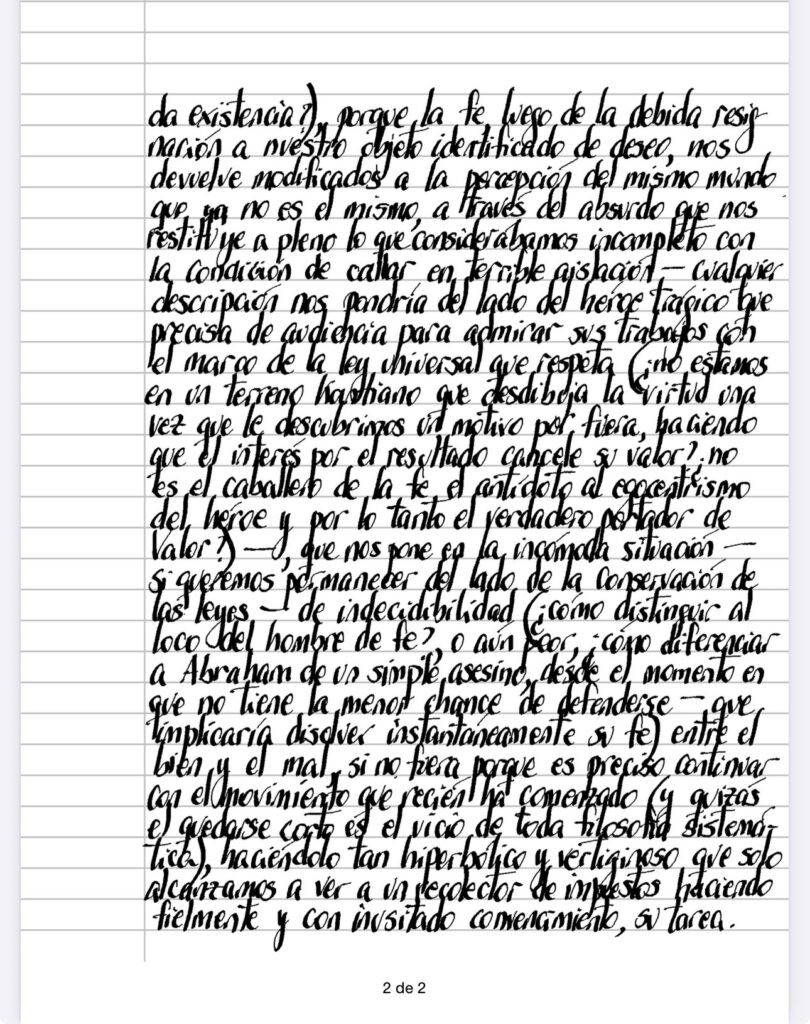 da existencia?), porque la fe, luego de la debida resig-
nación a nuestro objeto identificado de deseo, nos
devuelve modificados a la percepción del mismo mundo
que ya no es el mismo, a través del absurdo que nos
restituye a pleno lo que considerábamos incompleto con
la condición de callar en terrible aislación — cualquier
descripción nos pondría del lado del héroe trágico que
precisa de audiencia para admirar sus trabajos con
el marco de la ley universal que respeta (¿no estamos
en un terreno kantiano que desdibuja la virtud una
vez que le descubrimos un motivo por fuera, haciendo
que el interés por el resultado cancele su valor?, ¿no
es el caballero de la fe el antídoto al egocentrismo
del héroe y por lo tanto el verdadero portador de
valor?) —, que nos pone en la incómoda situación —
si queremos permanecer del lado de la conservación de
las leyes — de indecidibilidad (¿cómo distinguir al
loco del hombre de fe?, o aún peor, ¿cómo diferenciar
a Abraham de un simple asesino, desde el momento en
que no tiene la menor chance de defenderse — que
implicaría disolver instantáneamente su fe) entre el
bien y el mal, si no fuera porque es preciso continuar
con el movimiento que recién ha comenzado (y quizás
el quedarse corto es el vicio de toda filosofía sistemá-
tica), haciéndolo tan hiperbólico y vertiginoso que solo
alcanzamos a ver a un recolector de impuestos haciendo
fielmente y con inusitado convencimiento, su tarea.
2 de 2